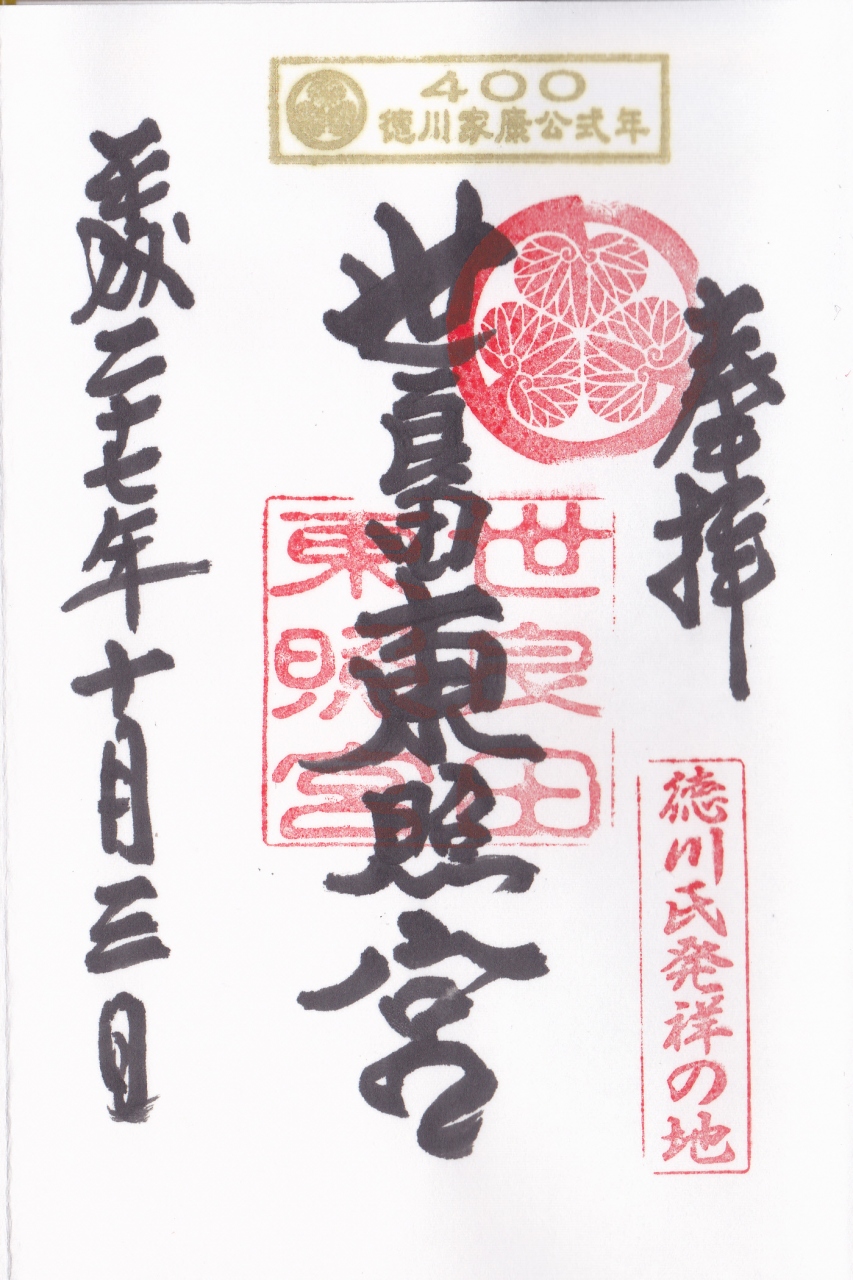 400
徳川家康公式年
奉拝
徳川氏発祥の地
世良田東照宮
世良田
東照宮
平成二十七年十月三日